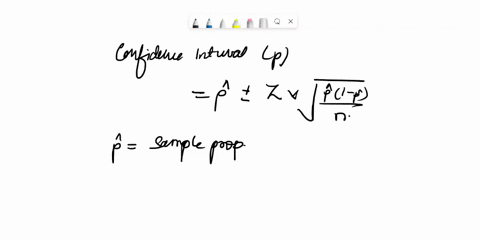 Confidence Interval (p)
= p̂ ± Z × √(p̂(1-p̂)/n)
p̂ = sample prop.